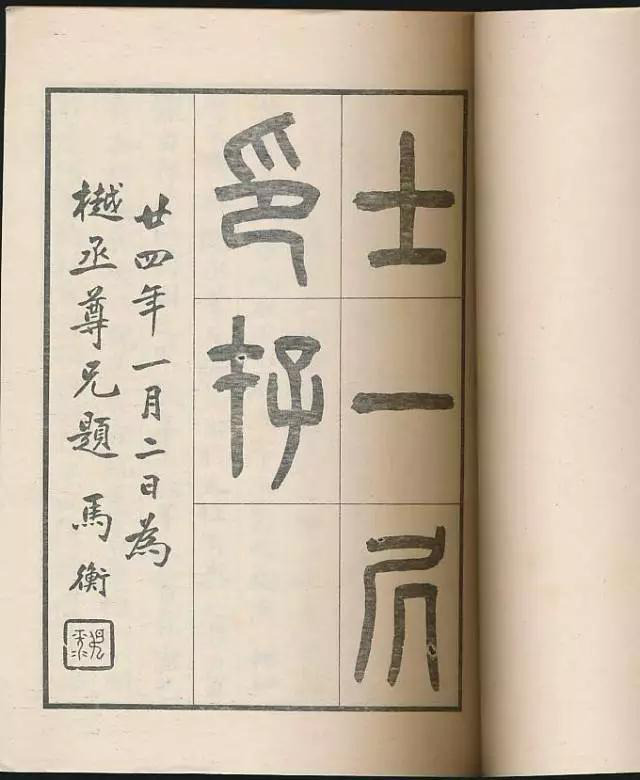 士一居
印存
廿四年一月二日為
樾丞尊兄題 馬衡